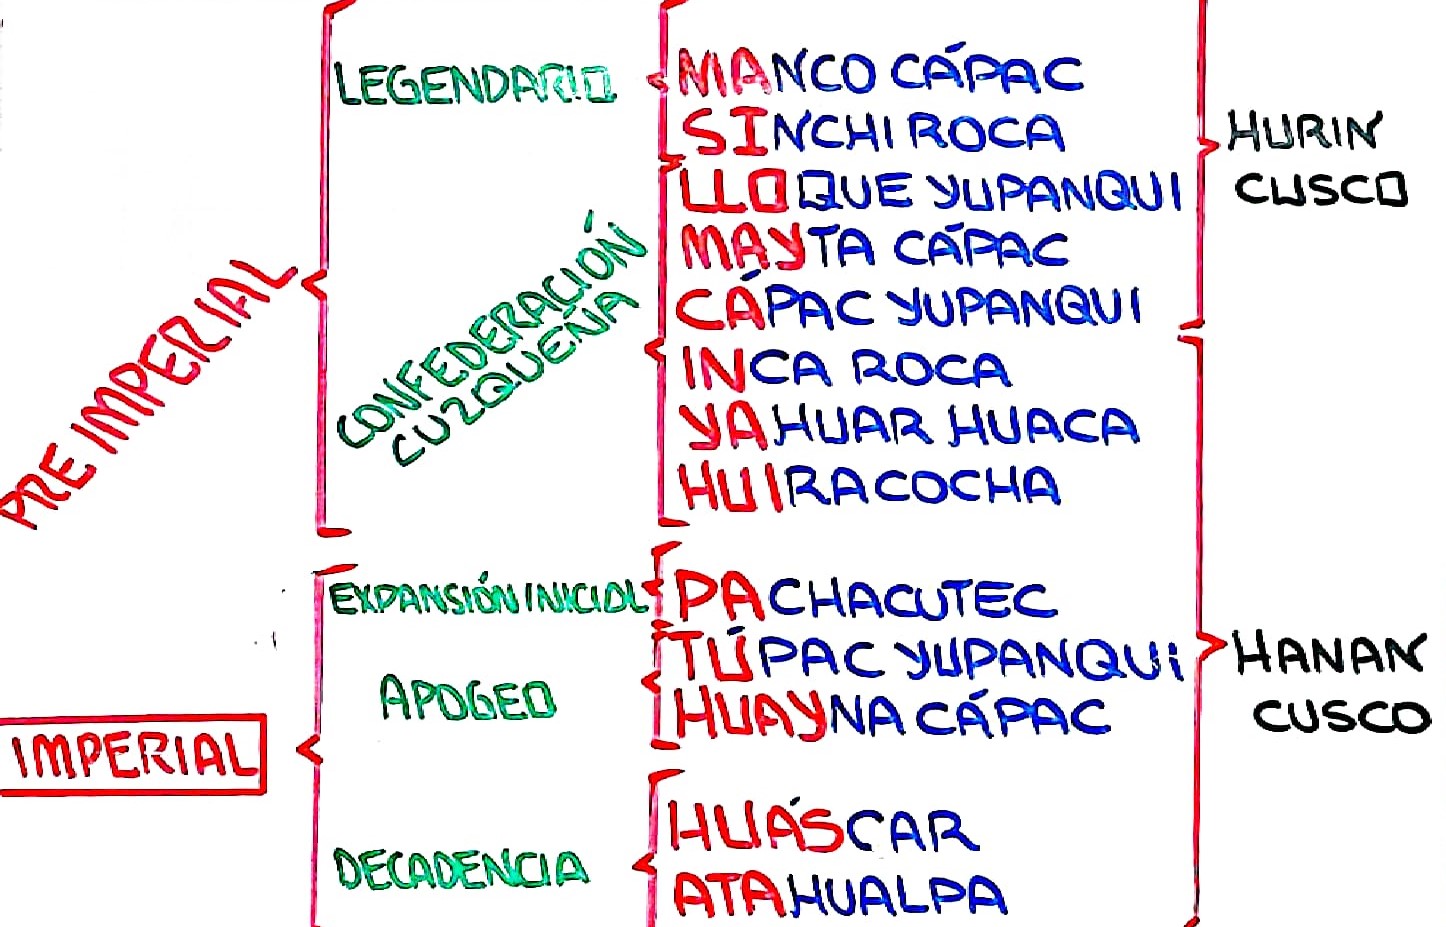 PRE IMPERIAL
LEGENDARIO
MANCO CÁPAC
SINCHI ROCA
HURIN
CUSCO
CONFEDERACIÓN
CUZQUEÑA
LLOQUE YUPANQUI
MAYTA CÁPAC
CÁPAC YUPANQUI
INCA ROCA
YAHUAR HUACA
HUIRACOCHA
IMPERIAL
EXPANSIÓN INICIAL
PACHACUTEC
APOGEO
TÚPAC YUPANQUI
HUAYNA CÁPAC
HANAN
CUSCO
DECADENCIA
HUÁSCAR
ATAHUALPA